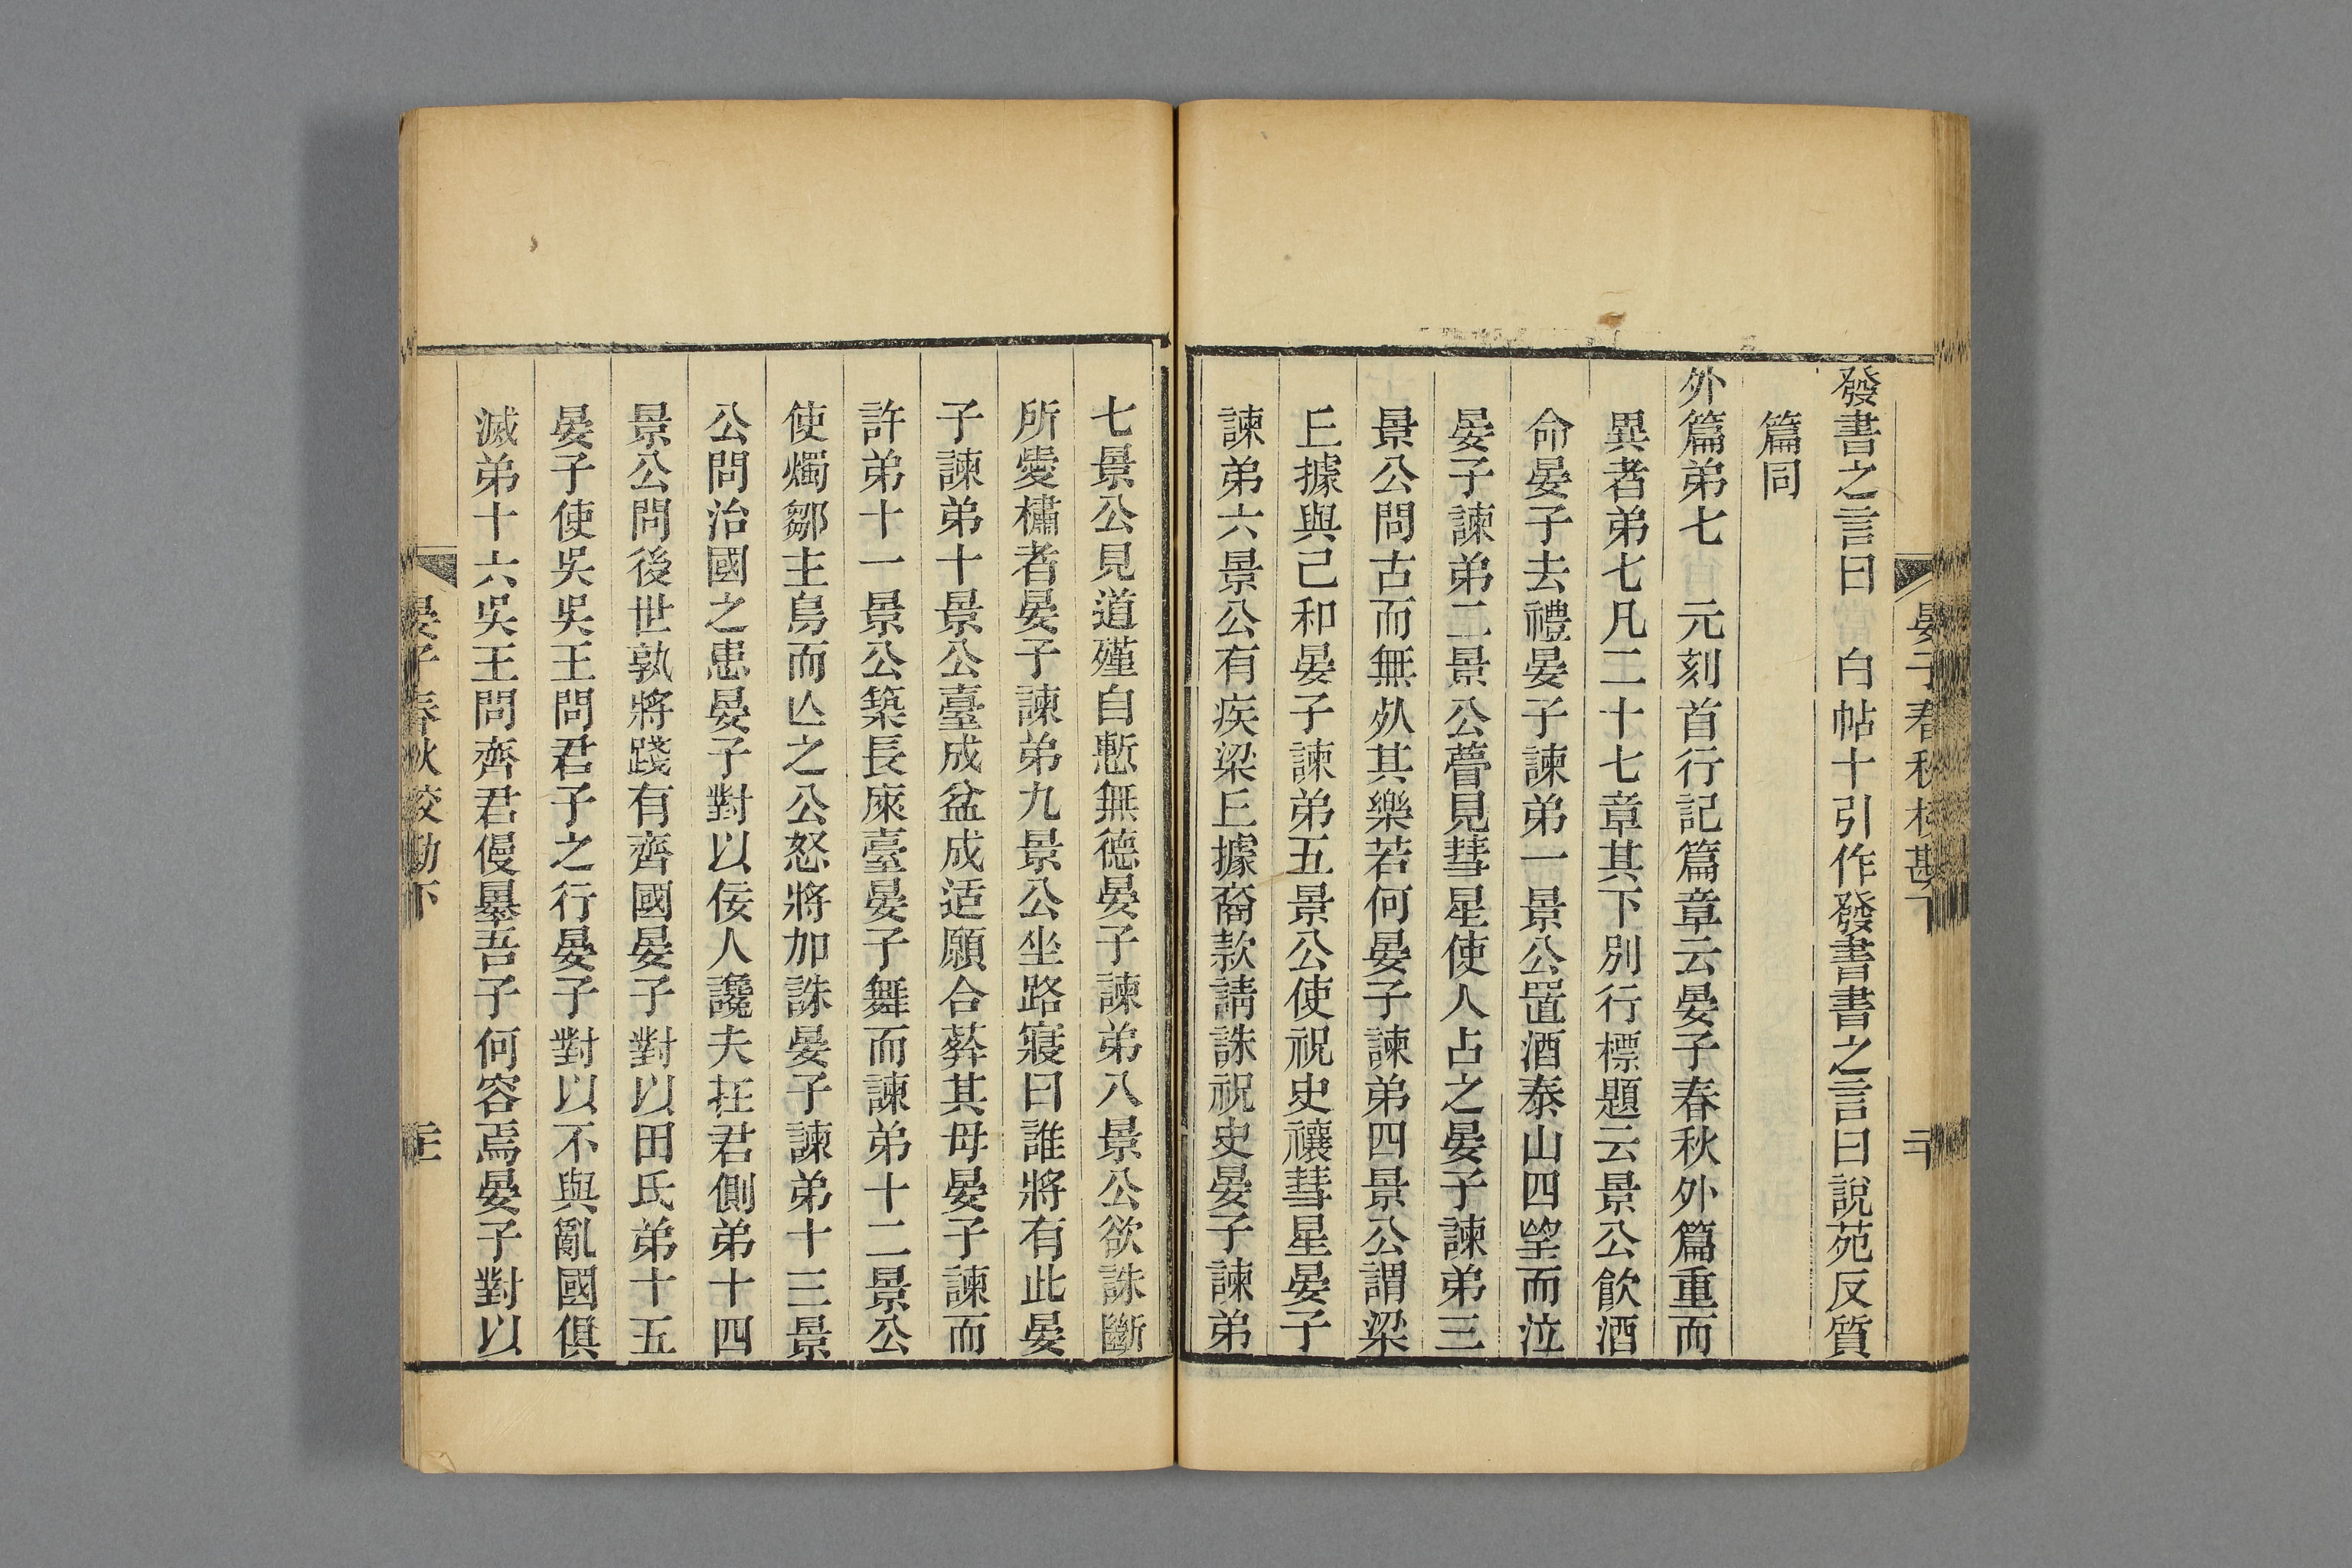 晏子春秋校勘下
二十
發書之言曰　白帖十引作發書書之言曰說苑反質
篇同
外篇弟七　元刻首行記篇章云晏子春秋外篇重而
異者弟七凡二十七章其下別行標題云景公飲酒
命晏子去禮晏子諫弟一景公置酒泰山四望而泣
晏子諫弟二景公瞢見彗星使人占之晏子諫弟三
景公問古而無𣦸其樂若何晏子諫弟四景公謂梁
丘據與己和晏子諫弟五景公使祝史禳彗星晏子
諫弟六景公有疾梁丘據裔款請誅祝史晏子諫弟
七景公見道殣自慙無德晏子諫弟八景公欲誅斷
所愛橚者晏子諫弟九景公坐路寢曰誰將有此晏
子諫弟十景公臺成盆成适願合葬其母晏子諫而
許弟十一景公築長庲臺晏子舞而諫弟十二景公
使燭鄒主鳥而亾之公怒將加誅晏子諫弟十三景
公問治國之患晏子對以佞人讒夫在君側弟十四
景公問後世孰將踐有齊國晏子對以田氏弟十五
晏子使吳吳王問君子之行晏子對以不與亂國俱
滅弟十六吳王問齊君僈㬥吾子何容焉晏子對以
晏子春秋校勘下